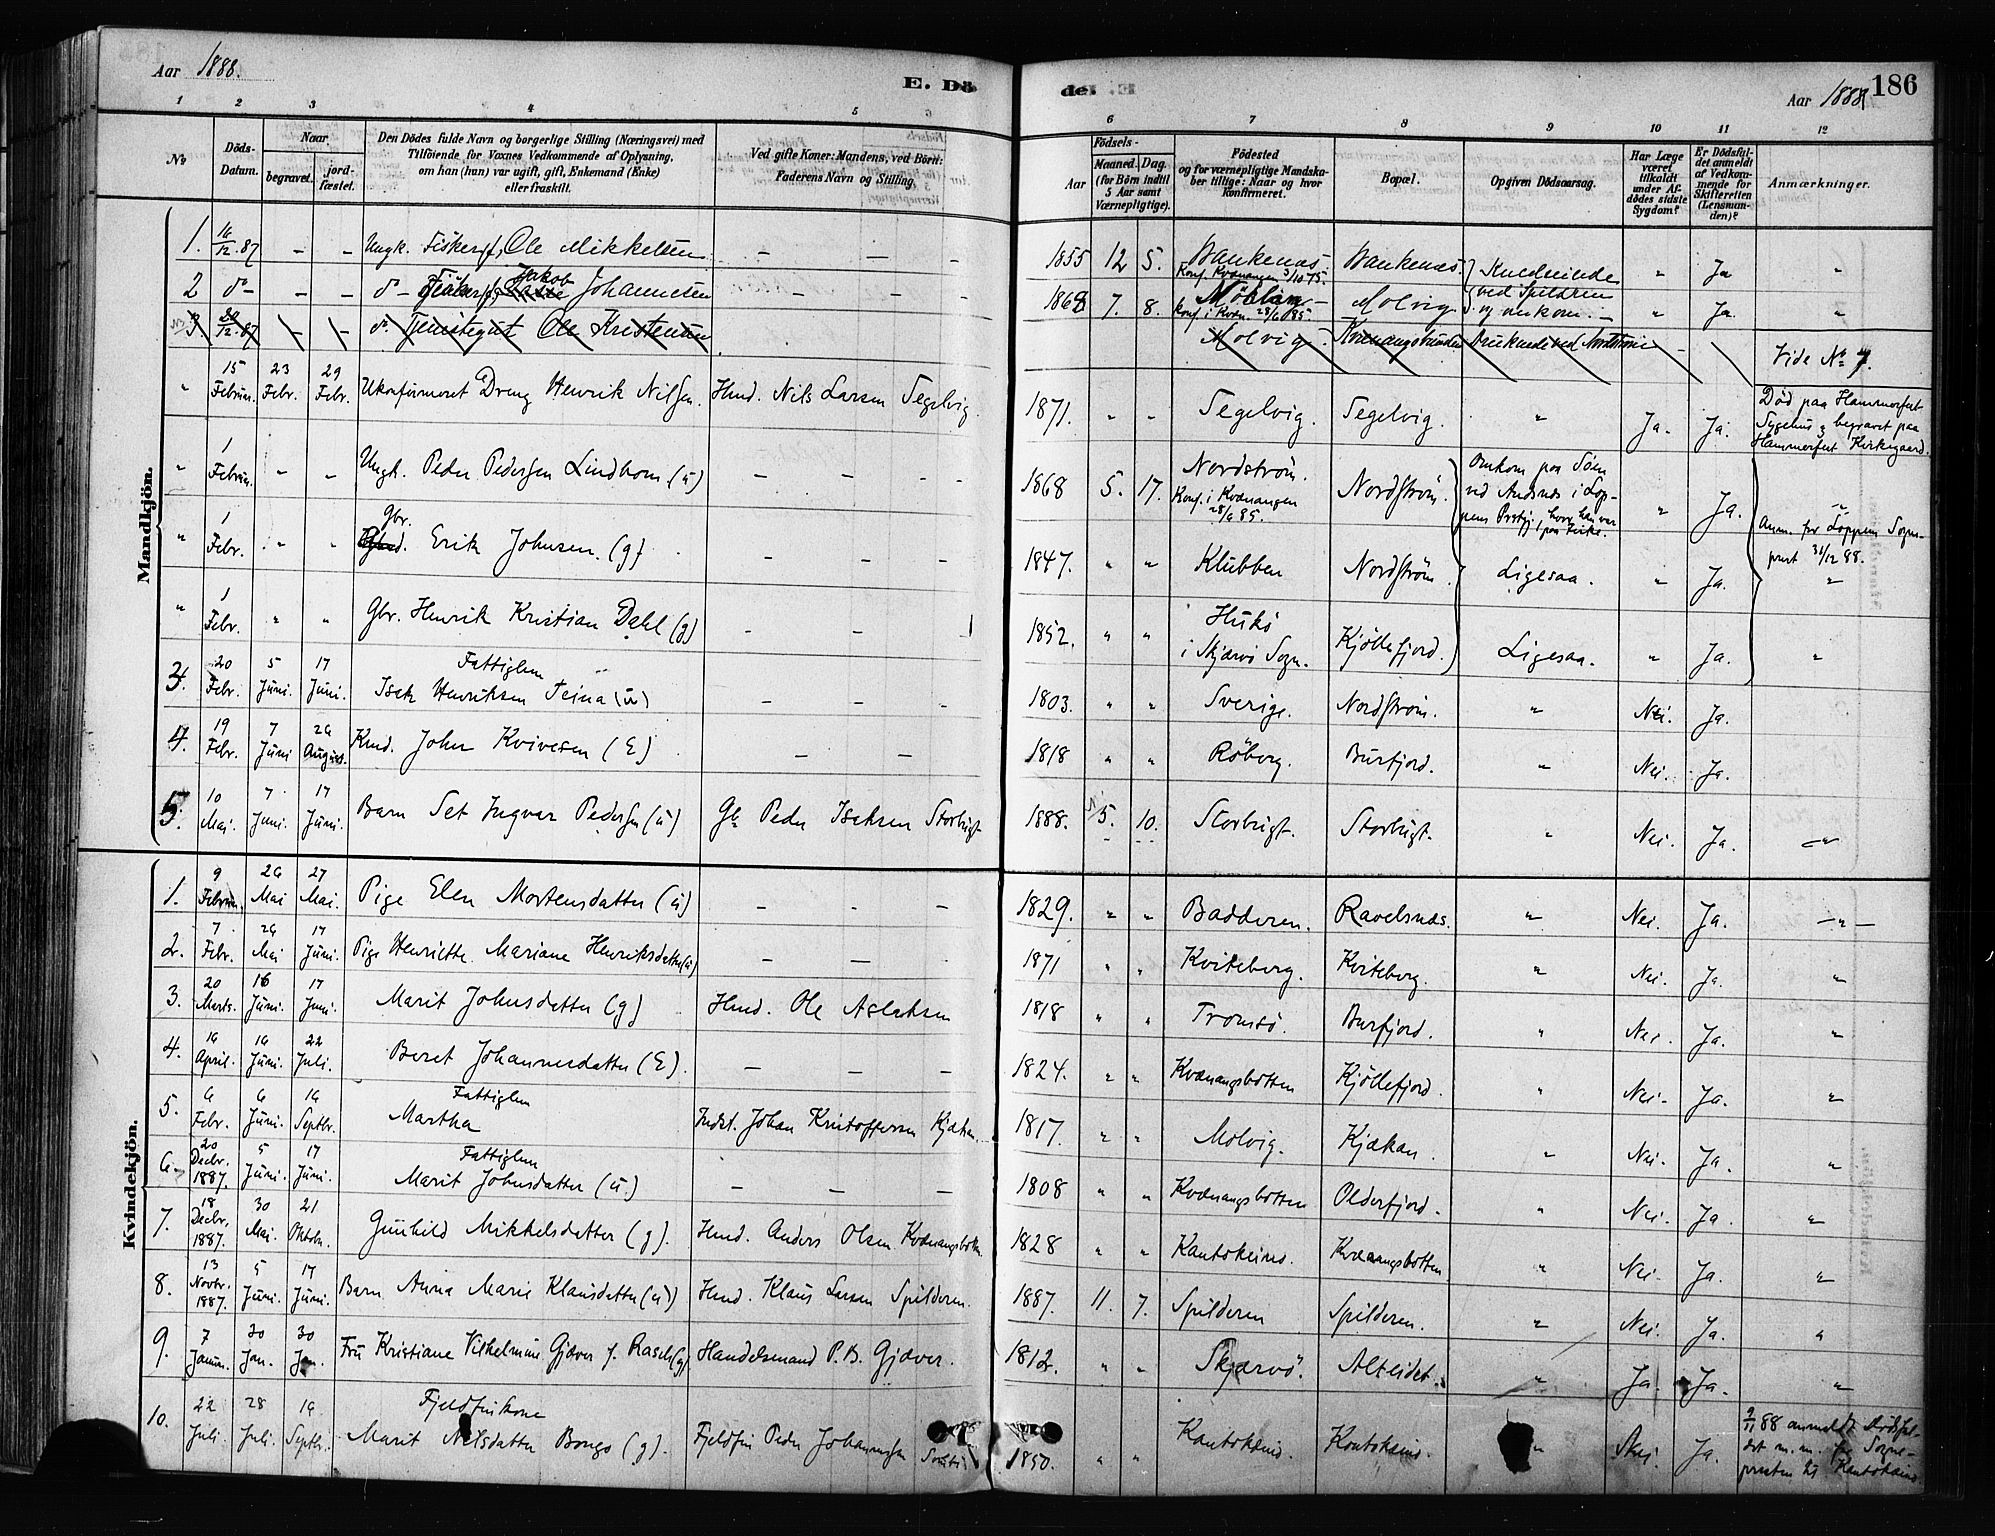 Aar 1888.
E. Dö
de.
Aar 1888
186
1 2 3 4 5 6
6 7 8 9 10 11 12
No
Döds-Datum.
Naar
begravet.
jord-fæstet.
Den Dödes fulde Navn og borgerlige Stilling (Næringsvei) med
Tilföiende for Voxnes Vedkommende af Oplysning,
om han (hun) var ugift, gift, Enkemand (Enke)
eller fraskilt.
Ved gifte Koner: Mandens, ved Börn:
Faderens Navn og Stilling.
Födsels-
Aar
Maaned. Dag.
(for Börn indtil
5 Aar samt
Værnepligtige).
Födested
og for værnepligtige Mandska-
ber tillige: Naar og hvor
konfirmeret.
Bopæl.
Opgiven Dödsaarsag.
Har Læge
været
tilkaldt
under Af-
dödes sidste
Sygdom?
Er Dödsfal-
det anmeldt
af Vedkom-
mende for
Skifteretten
(Lensman-
den)?
Anmærkninger.
Mandkjön.
1. 16/12.87 – – Ungk. Fiskerf. Ole Mikkelsen – – – 1855 12 5. Konf. Kvænangen 3/10 75. " Ja "
2 do – – – do – Fiskerf. Jakob Johannesen – – – 1868 7. 8. Konf. i Kvæn. 28/6 85. Molvig. ved Spilderen og omkom. – " Ja. "
3. /12.87 – – do. Tjenestegut Ole Kristensen Molvig. Druknede ved Nordström Vide No 7.
" 15 Februar. 23 Febr. 29 Febr. Ukonfirmeret Dreng Henrik Nilsen. Hmd. Nils Larsen Segelvig. 1871. " " Segelvig. Segelvig. " Ja. Ja. Död paa Hammerfest Sygehus & begravet paa Hammerfest Kirkegaard.
" 1 Februar. " " Ungk. Peder Pedersen Lindbom (u) – – – 1868 5. 17. Nordström. Konf. i Kvænangen 28/6 85. Nordström. Omkom paa Söen ved Andsnes i Loppens Prstgj., hvor han var paa Fiske. " Ja. "
" 1 Febr. " " Gbr. Erik Johnsen. (g) – – – 1847. " " Klubben Nordström. Ligesaa. " Ja. Anm. for Loppens Sogneprest 31/12 88. "
" 1 Febr. " " Gbr. Henrik Kristian Dahl (g) – – 1852. " " Hukö i Skjærvö Sogn. Kjöllefjord. Ligesaa. " Ja. "
3. 20 Febr. 5 Juni. 17 Juni. Fattiglem Isak Henriksen Teina (u) – – – 1803. " " Sverige. Nordström. " Nei. Ja.
4. 19 Febr. 7 Juni 26 August. Kmd. John Kvivesen (E) – – 1818 " " Röberg. Burfjord. " Nei. Ja.
5. 10 Mai. 7 Juni. 17 Juni. Barn Set Ingvar Pedersen (u) Gb. Peder Isaksen Storbugt 1888. 5. 10. Storbugt. Storbugt. " Nei. Ja. "
Kvindekjön.
1. 9 Februar. 26 Mai 27 Mai. Pige Elen Mortensdatter (u) – – – 1829. " " Badderen. Ravelsnæs. " Nei. Ja. – " –
2. 7 Febr. 26 Mai 17 Juni. Pige Henriette Mariane Henriksdatter (u) – – 1871 " " Kviteberg. Kviteberg. " Nei. Ja. "
3. 20 Marts. 16 Juni. 17 Juni. Marit Johnsdatter (g) Hmd. Ole Aslaksen 1818 " " Tromsö. Burfjord. " Nei. Ja. "
4. 16 April. 16 Juni. 22 Juli. Beret Johannesdatter (E). – – – 1824. " " Kvænangsbotten Kjöllefjord. " Nei. Ja. "
5. 6 Febr. 6 Juni. 16 Septbr. Fattiglem Martha Indst. Johan Kristoffersen Kjækan. 1817. " " Molvig. Kjækan. " Nei. Ja. "
6. 20 Decbr. 1887. 5 Juni. 17 Juni. Fattiglem Marit Johnsdatter (u.) – – – 1808 " " Kvænangsbotten Olderfjord. " Nei. Ja. "
7. 18 Decbr. 1887. 30 Mai. 21 Oktobr. Gunhild Mikkelsdatter (g). Hmd. Anders Olsen Kvænangsbotten. 1828 " " Kautokeino. Kvænangsbotten " Nei. Ja. "
8. 13 Novbr. 1887. 5 Juni. 17 Juni. Barn Anna Marie Klausdatter (u) Hmd. Klaus Larsen Spilderen. 1887. 11. 7. Spilderen Spilderen. " Nei. Ja. "
9. 7 Januar. 30 Jan. 30 Jan. Fru Kristiane Vilhelmine Gjæver f. Rasch (g) Handelsmand P. B. Gjæver. 1812. " " Skjærvö. Alteidet. " Ja. Ja. "
10. 22 Juli. 28 Juli. 16 Septbr. Fjeldfinkone Marit Nilsdatter Bongo (g). Fjeldfin Peder Johannesen 1850. " " Kautokeino. Kautokeino. " Nei. Ja. 9/11 88 anmeldt Dödsfaldet m.m. for Sognepresten til Kautokeino.